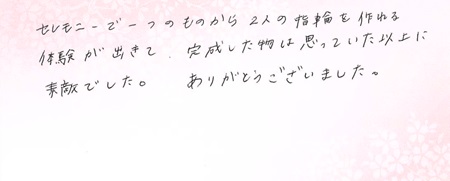 セレモニーで一つのものから2人の指輪を作れる
体験が出きて、完成した物は思っていた以上に
素敵でした。 ありがとうございました。